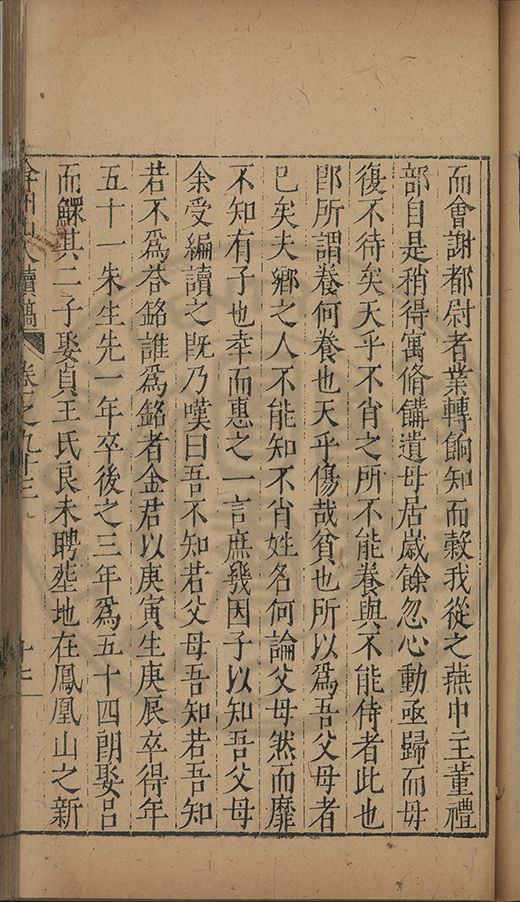 而會謝都尉者業轉餉知而縠我從之燕中主董禮
部自是稍得寓脩饟遺母居歲餘忽心動亟歸而母
復不待矣天乎不肖之所不能養與不能侍者此也
郎所謂養何養也天乎傷哉貧也所以為吾父母者
已矣夫鄉之人不能知不肖姓名何論父母然而靡
不知有子也幸而惠之一言庶幾因子以知吾父母
余受編讀之既乃嘆曰吾不知若父母吾知若吾知
若不為若銘誰為銘者金君以庚寅生庚辰卒得年
五十一朱生先一年卒後之三年為五十四朗娶呂
而鰥其二子娶貞王氏良未聘塟地在鳳凰山之新
弇州山人續稿 卷之九十三